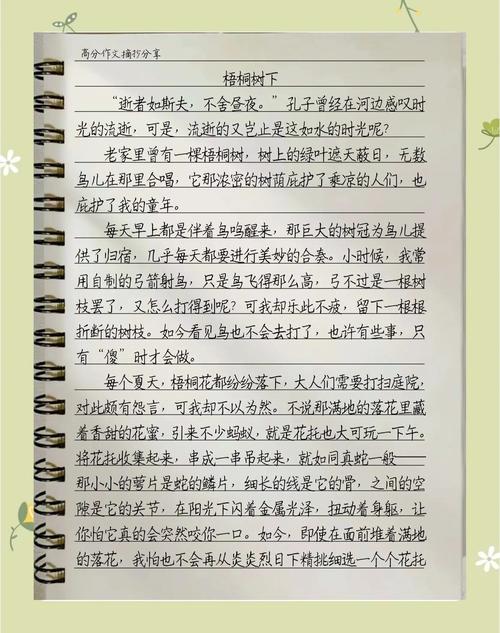 高分作文摘抄分享
梧桐树下
“逝者如斯夫，不舍昼夜。”孔子曾经在河边感叹时
光的流逝，可是，流逝的又岂止是这如水的时光呢？
老家里曾有一棵梧桐树，树上的绿叶遮天蔽日，无数
鸟儿在那里合唱，它那浓密的树荫庇护了乘凉的人们，也
庇护了我的童年。
每天早上都是伴着鸟鸣醒来，那巨大的树冠为鸟儿提
供了归宿，几乎每天都要进行美妙的合奏。小时候，我常
用自制的弓箭射鸟，只是鸟飞得那么高，弓不过是一根树
枝罢了，又怎么打得到呢？可我却乐此不疲，留下一根根
折断的树枝。如今看见鸟也不会去打了，也许有些事，只
有“傻”时才会做。
每个夏天，梧桐花都纷纷落下，大人们需要打扫庭院，
对此颇有怨言，可我却不以为然。不说那满地的落花里藏
着香甜的花蜜，引来不少蚂蚁，就是花托也大可玩一下午。
将花托收集起来，串成一串吊起来，就如同真蛇一般——
那小小的萼片是蛇的鳞片，细长的线是它的骨，之间的空
隙是它的关节，在阳光下闪着金属光泽，扭动着身躯，让
你怕它真的会突然咬你一口。如今，即使在面前堆着满地
的落花，我怕也不会再从炎炎烈日下精挑细选一个个花托